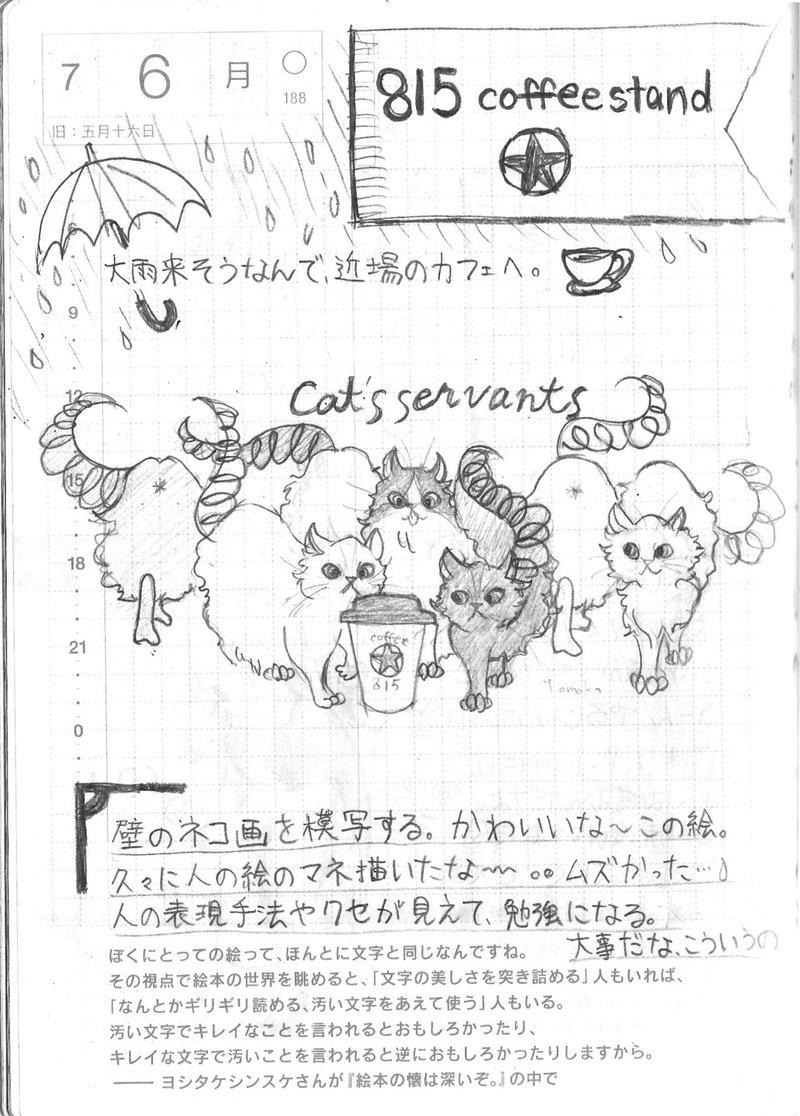 7 6 月
188
旧：五月十六日
815 coffee stand
大雨来そうなんで、近場のカフェへ。
9
12
Cat's servants
15
18
coffee
815
Tomoka
21
0
壁のネコ画を模写する。かわいいな〜この絵。
久々に人の絵のマネ描いたな〜〜 。。ムズかった…
人の表現手法やクセが見えて、勉強になる。
大事だな、こういうの
ぼくにとっての絵って、ほんとに文字と同じなんですね。
その視点で絵本の世界を眺めると、「文字の美しさを突き詰める」人もいれば、
「なんとかギリギリ読める、汚い文字をあえて使う」人もいる。
汚い文字でキレイなことを言われるとおもしろかったり、
キレイな文字で汚いことを言われると逆におもしろかったりしますから。
—— ヨシタケシンスケさんが『絵本の懐は深いぞ。』の中で